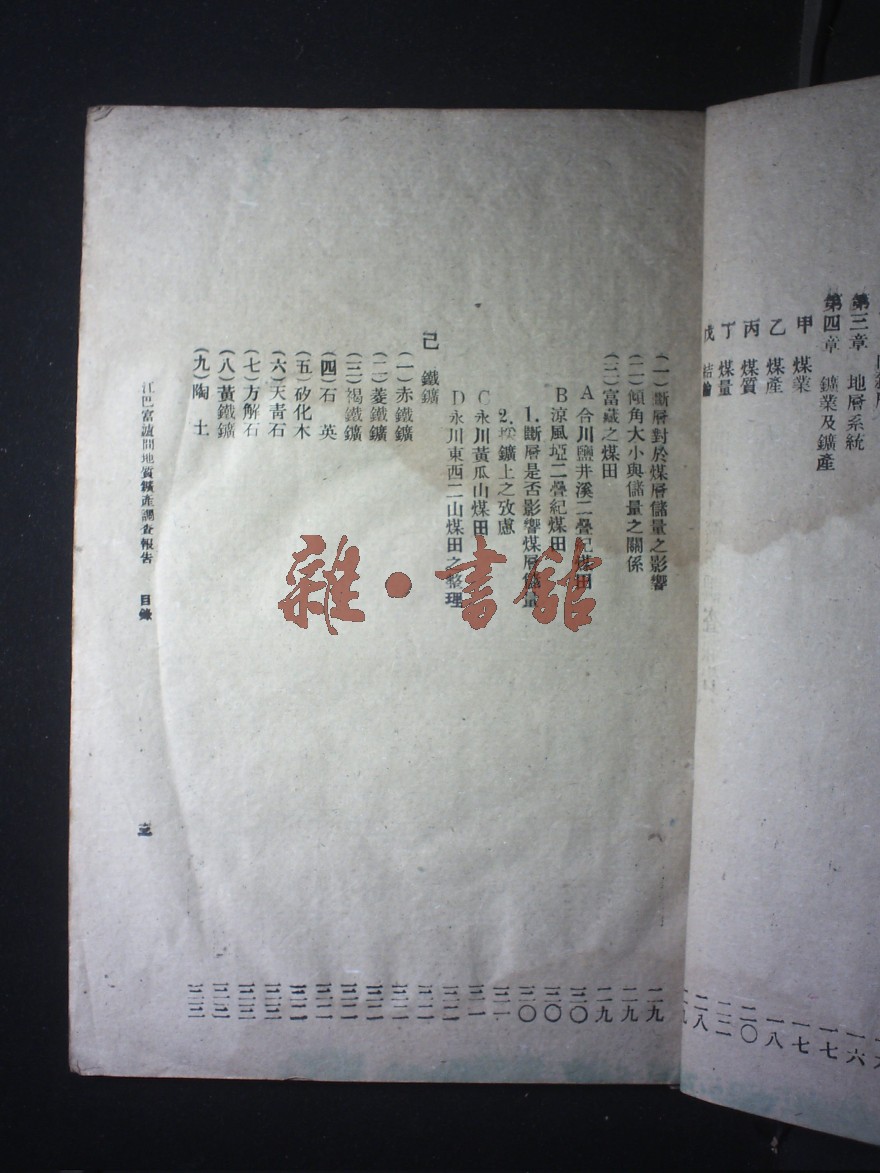 第三章 地層系統 一六
第四章 鑛業及鑛產 一七
甲 煤業 一七
乙 煤產 一八
丙 煤質 二〇
丁 煤量
戊 結論 二八
（一）斷層對於煤層儲量之影響 二九
（二）傾角大小與儲量之關係 二九
（三）富藏之煤田 二九
A 合川鹽井溪二疊紀煤田 三〇
B 涼風埡二疊紀煤田 三〇
1. 斷層是否影響煤層儲量 三〇
2. 鑛上之攷慮 三一
C 永川黃瓜山煤田 三一
D 永川東西二山煤田之整理
己 鐵鑛
（一）赤鐵鑛
（二）菱鐵鑛
（三）褐鐵鑛
（四）石英
（五）矽化木
（六）天青石
（七）方解石
（八）黃鐵鑛
（九）陶土
江巴富瀘間地質鑛產調查報告 目錄 三
雜·書館